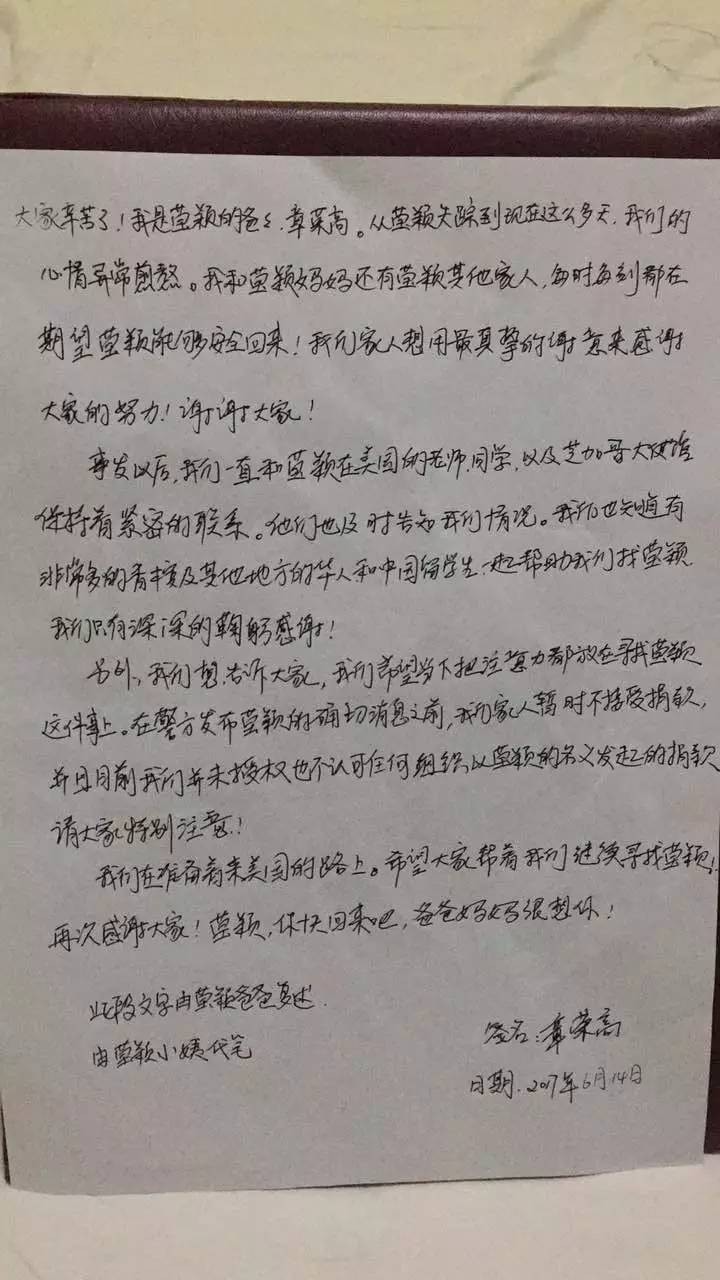 大家辛苦了！我是莹颖的爸爸，章荣高。从莹颖失踪到现在这么多天，我们的
心情异常煎熬。我和莹颖妈妈还有莹颖其他家人，每时每刻都在
期望莹颖能够安全回来！我们家人想用最真挚的谢意来感谢
大家的努力！谢谢大家！
事发以后，我们一直和莹颖在美国的老师，同学，以及芝加哥大使馆
保持着紧密的联系。他们也及时告知我们情况。我们也知晓有
非常多的香槟及其他地方的华人和中国留学生一起帮助我们找莹颖
我们只有深深的鞠躬感谢！
另外，我们想告诉大家，我们希望当下把注意力都放在寻找莹颖
这件事上。在警方发布莹颖的确切消息之前，我们家人暂时不接受捐款，
并且目前我们并未授权也不认可任何组织以莹颖的名义发起的捐款
请大家特别注意！
我们在准备着来美国的路上。希望大家帮着我们继续寻找莹颖！
再次感谢大家！莹颖，你快回来吧，爸爸妈妈很想你！
此段文字由莹颖爸爸复述．
由莹颖小姨代笔
签名：章荣高
日期．2017年6月14日